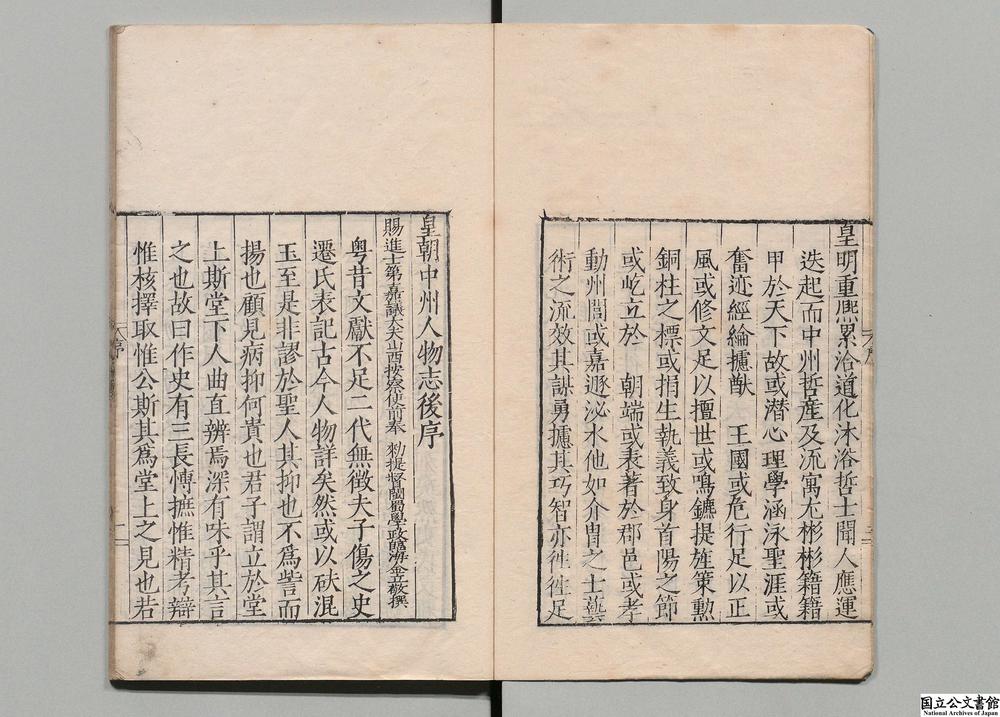 皇明重熈累洽道化沐浴哲士聞人應運
迭起而中州哲産及流寓尤彬彬籍籍
甲於天下故或潜心理學涵泳聖涯或
奮迹經綸攄猷　王國或危行足以正
風或修文足以擅世或鳴鑣提旌策勲
銅柱之標或捐生執義致身首陽之節
或屹立於　朝端或表著於郡邑或孝
動州閭或嘉遯泌水他如介胄之士藝
術之流效其謀勇攄其巧智亦徃徃足
皇朝中州人物志後序
賜進士第嘉議大夫山西按察使前奉　勑提督學政
粤昔文獻不足二代無徴夫子傷之史
遷氏表記古今人物詳矣然或以砆混
玉至是非謬於聖人其抑也不爲訾而
揚也顧見病抑何貴也君子謂立於堂
上斯堂下人曲直辨焉深有味乎其言
之也故曰作史有三長慱摭惟精考辯
惟核擇取惟公斯其爲堂上之見也若
序
國立公文書館
National Archives of Japan